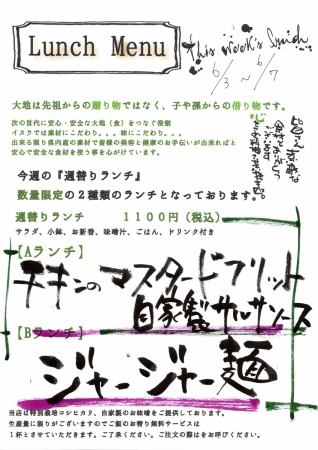 Lunch Menu
This week's Lunch
6/3 ~ 6/7
大地は先祖からの贈り物ではなく、子や孫からの借り物です。
次の世代に安心・安全な大地（食）をつなぐ役割
イスラでは素材にこだわり。。。味にこだわり。。。
出来る限り県内産の素材で皆様の美容と健康のお手伝いが出来ればと
安心で安全な食材を使う事を心がけています。
今週の『週替りランチ』
数量限定の２種類のランチとなっております。
週替りランチ　　１１００円（税込）
サラダ、小鉢、お新香、味噌汁、ごはん、ドリンク付き
【Aランチ】
チキンのマスタードフリット
自家製サルサソース
【Bランチ】
ジャージャー麺
当店は特別栽培コシヒカリ、自家製のお味噌をご提供しております。
生産量に限りがございますのでご飯のお替り無料サービスは
１杯とさせていただきます。ご了承ください。ご注文の際はをお呼びください。